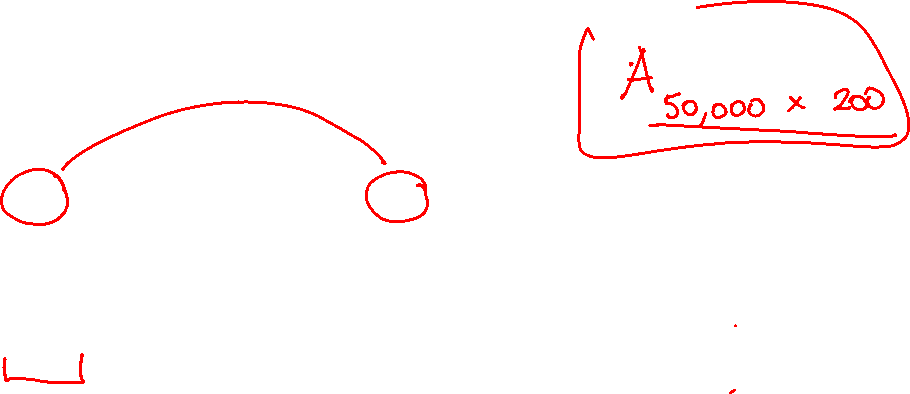 A 50,000 x 200